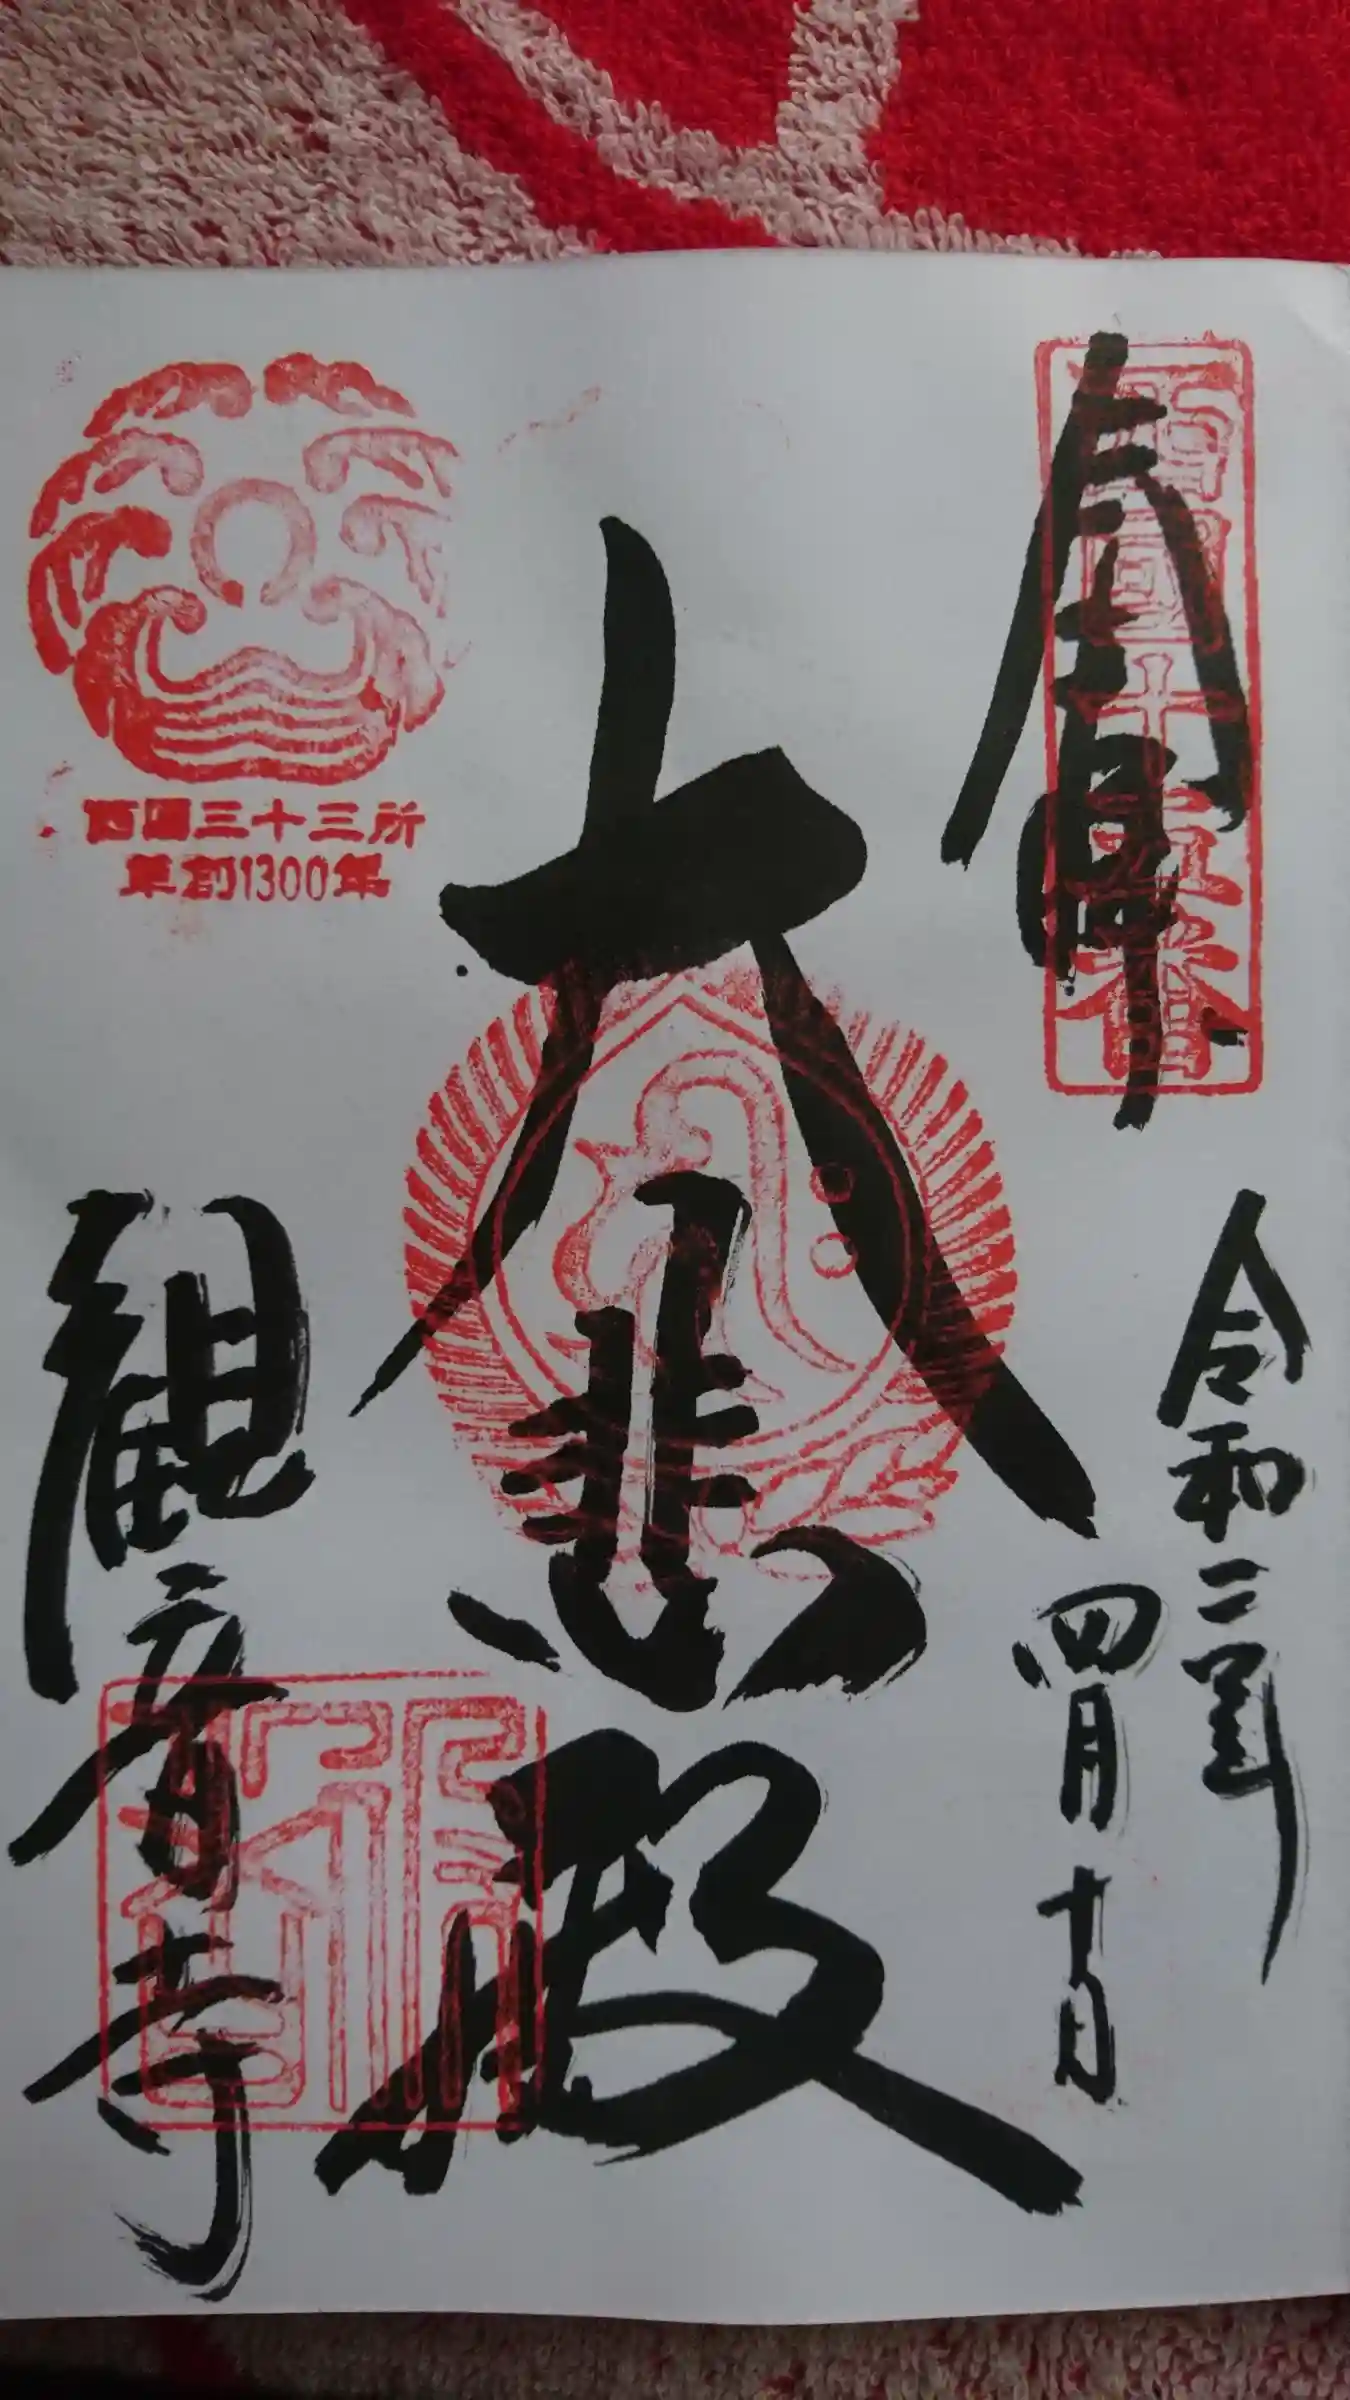 奉拝
西国十五番
令和二年
四月十日
大悲殿
観音寺
西国三十三所
草創1300年